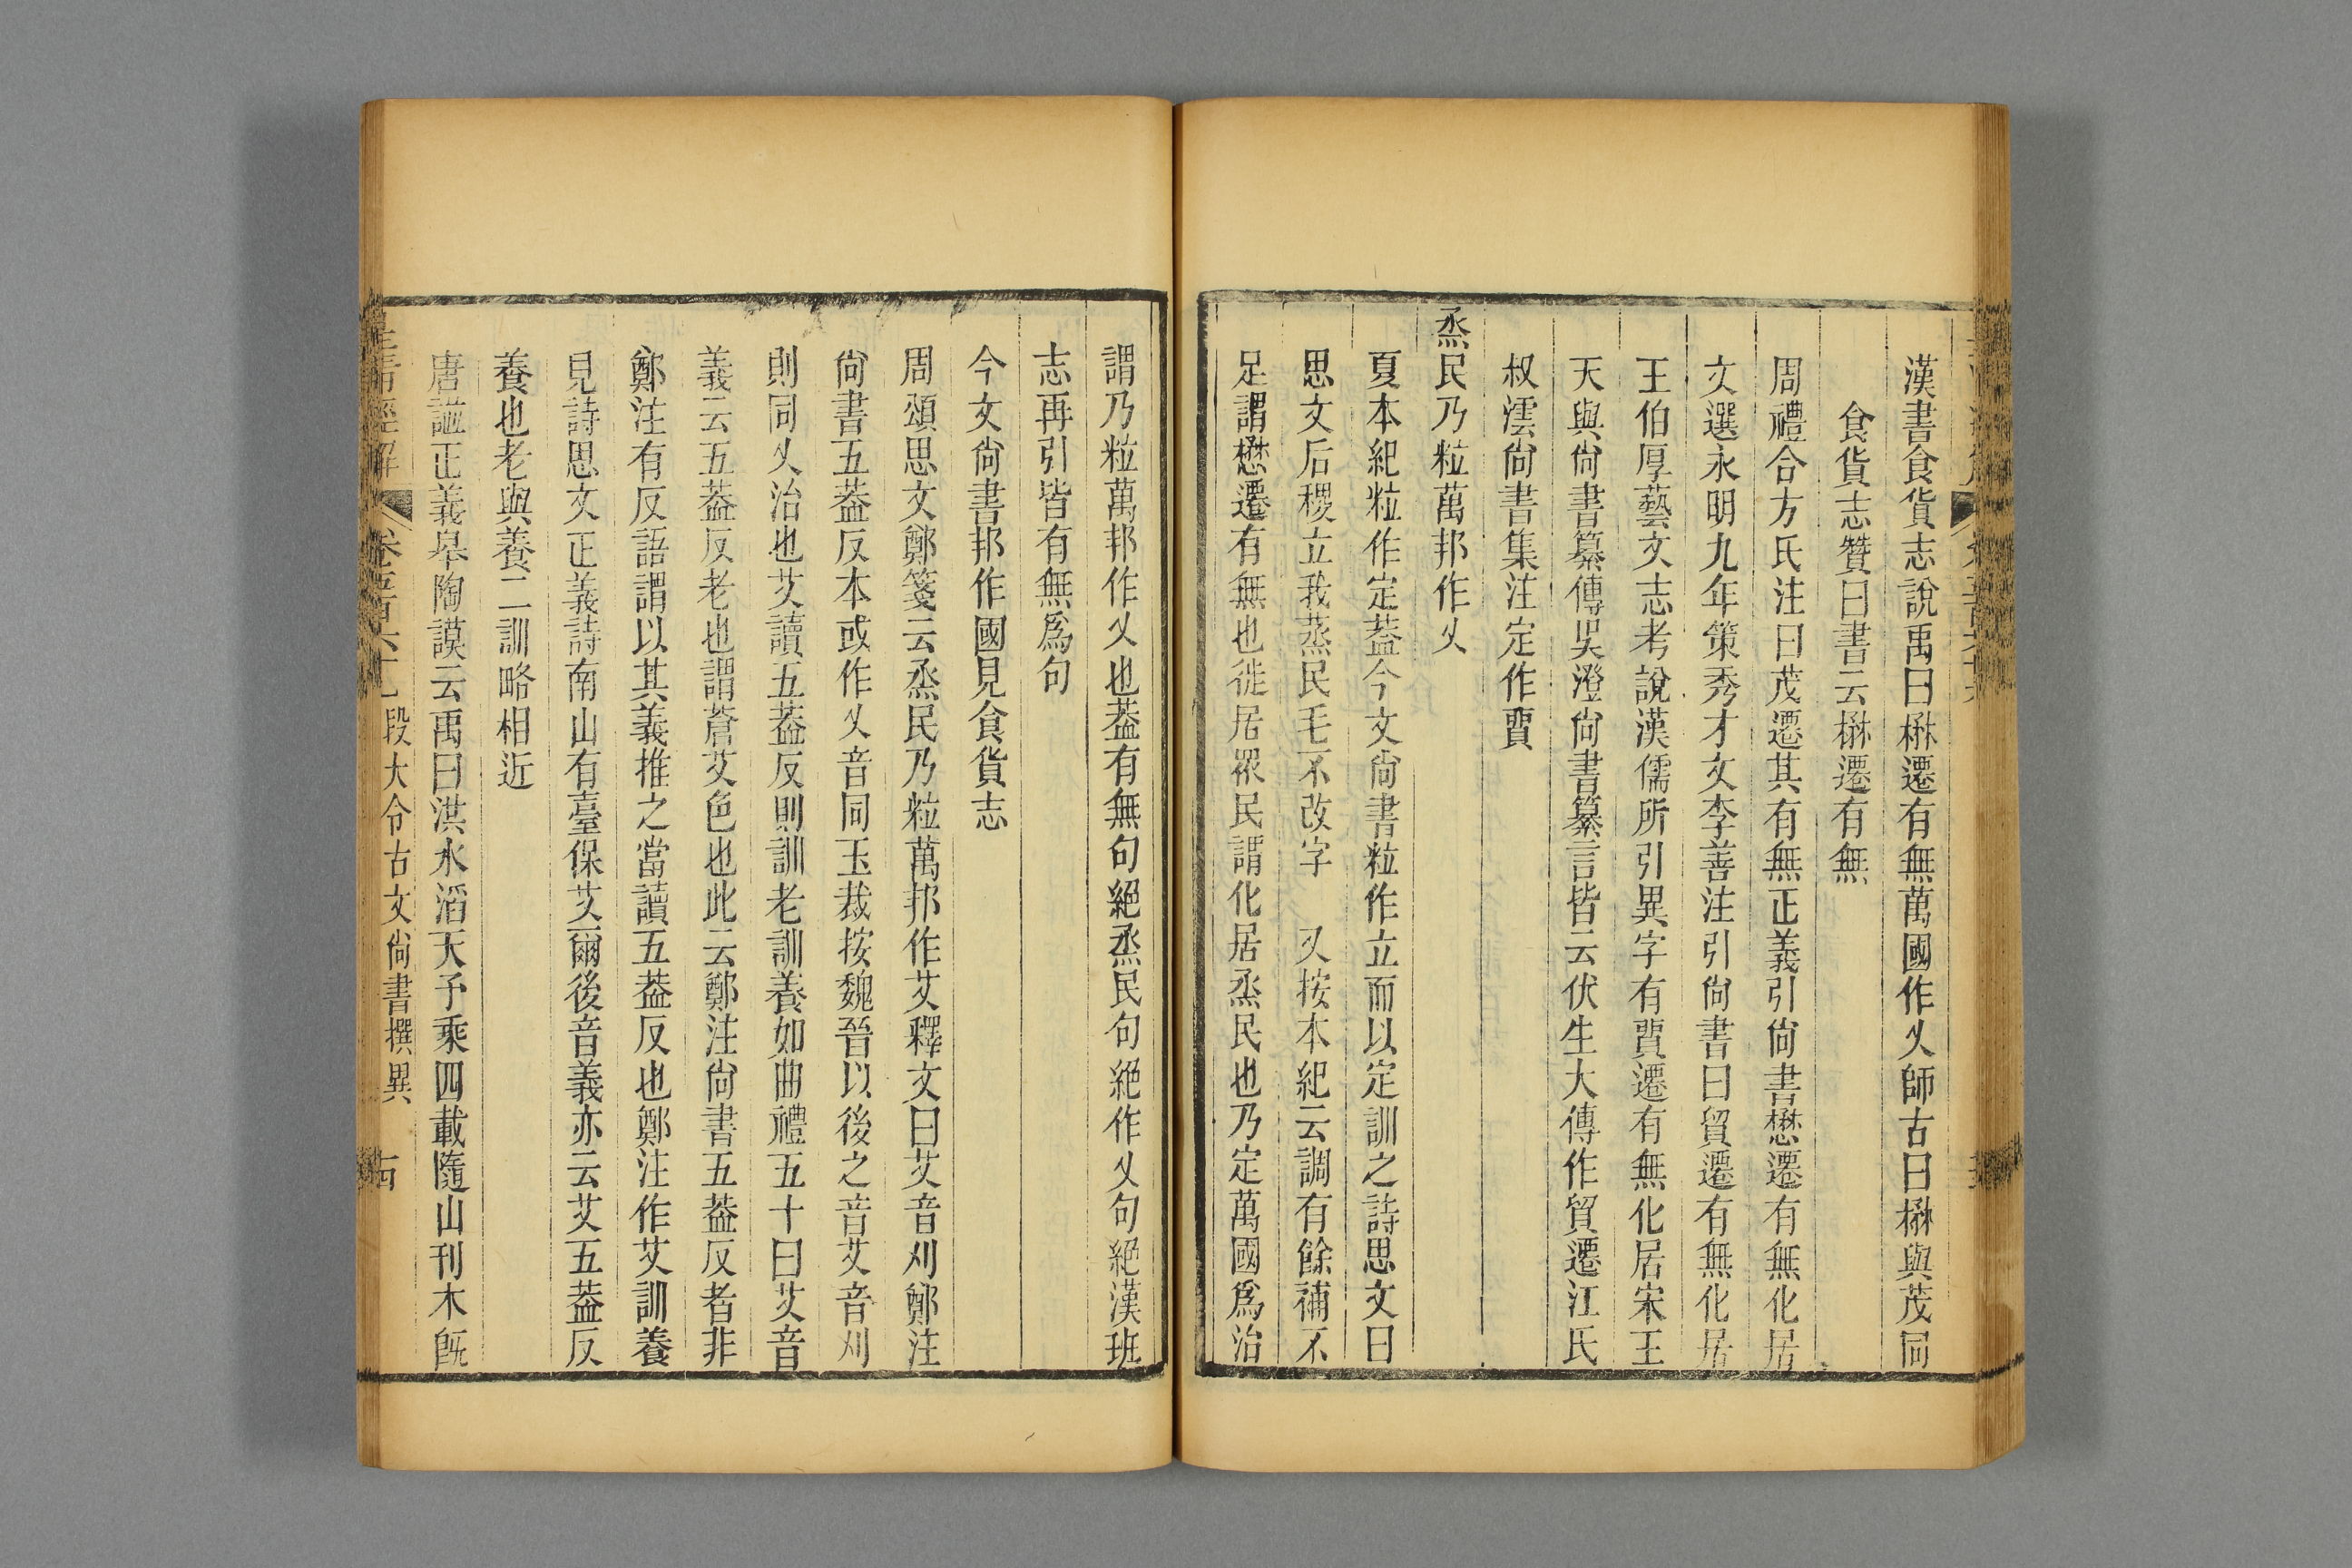 漢書食貨志說禹曰楙遷有無萬國作乂師古曰楙與茂同
食貨志贊曰書云楙遷有無
周禮合方氏注曰茂遷其有無正義引尙書懋遷有無化居
文選永明九年策秀才文李善注引尙書曰貿遷有無化居
王伯厚藝文志考說漢儒所引異字有貿遷有無化居宋王
天與尙書纂傳吳澄尙書纂言皆云伏生大傳作貿遷江氏
叔澐尙書集注定作貿
烝民乃粒萬邦作乂
夏本紀粒作定葢今文尙書粒作立而以定訓之詩思文曰
思文后稷立我蒸民毛不改字　又按本紀云調有餘補不
足謂懋遷有無也徙居衆民謂化居烝民也乃定萬國爲治
謂乃粒萬邦作乂也葢有無句絕烝民句絕作乂句絕漢班
志再引皆有無爲句
今文尙書邦作國見食貨志
周頌思文鄭箋云烝民乃粒萬邦作艾釋文曰艾音刈鄭注
尙書五葢反本或作乂音同玉裁按魏晉以後之音艾音刈
則同乂治也艾讀五葢反則訓老訓養如曲禮五十曰艾音
義云五葢反老也謂蒼艾色也此云鄭注尙書五葢反者非
鄭注有反語謂以其義推之當讀五葢反也鄭注作艾訓養
見詩思文正義詩南山有臺保艾爾後音義亦云艾五葢反
養也老與養二訓略相近
唐諡正義皋陶謨云禹曰洪水滔天予乘四載隨山刊木旣
皇清經解 段大令古文尙書撰異